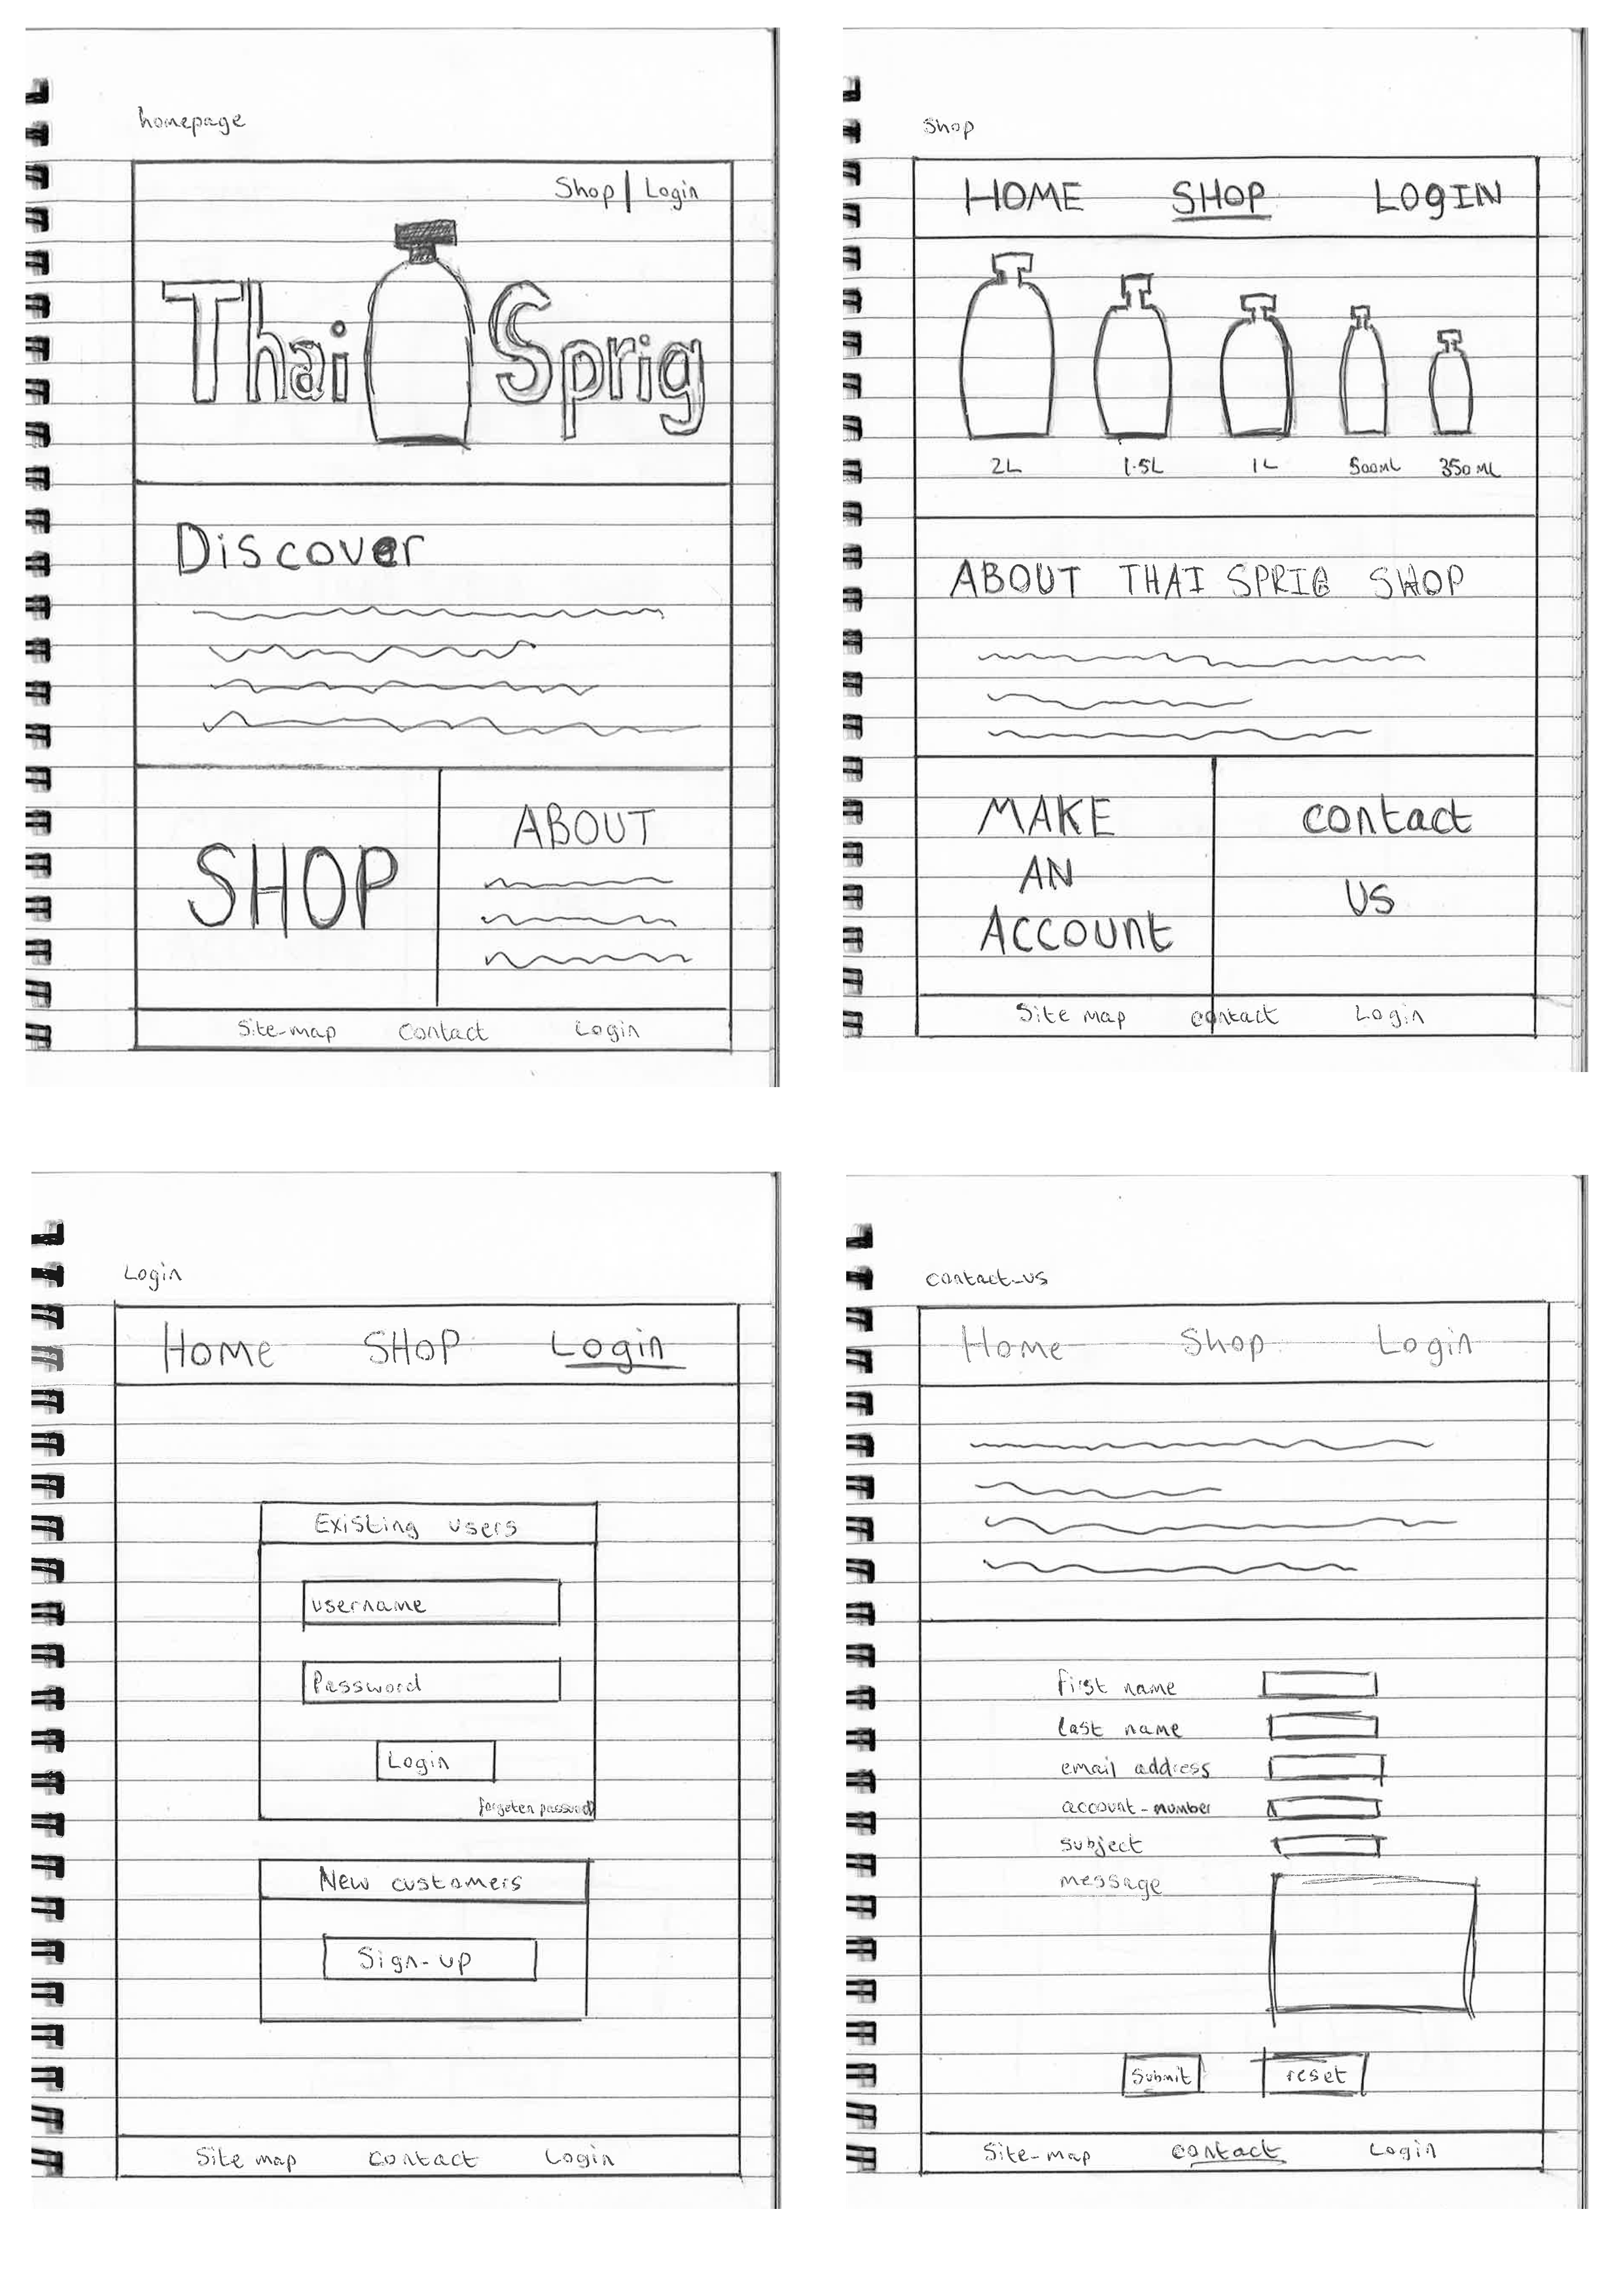 homepage
Shop | Login
Thai Sprig
Discover
SHOP
ABOUT
Site-map Contact Login
Shop
HOME SHOP LOGIN
2L 1.5L 1L 500ML 350ML
ABOUT THAI SPRIG SHOP
MAKE
AN
ACCOUNt
contact
us
Site map contact Login
Login
Home SHOP Login
Existing users
username
Password
Login
forgoten password
New customers
Sign-up
Site map contact Login
contact-us
Home Shop Login
first name
last name
email address
account-number
subject
message
Submit reset
Site-map contact Login